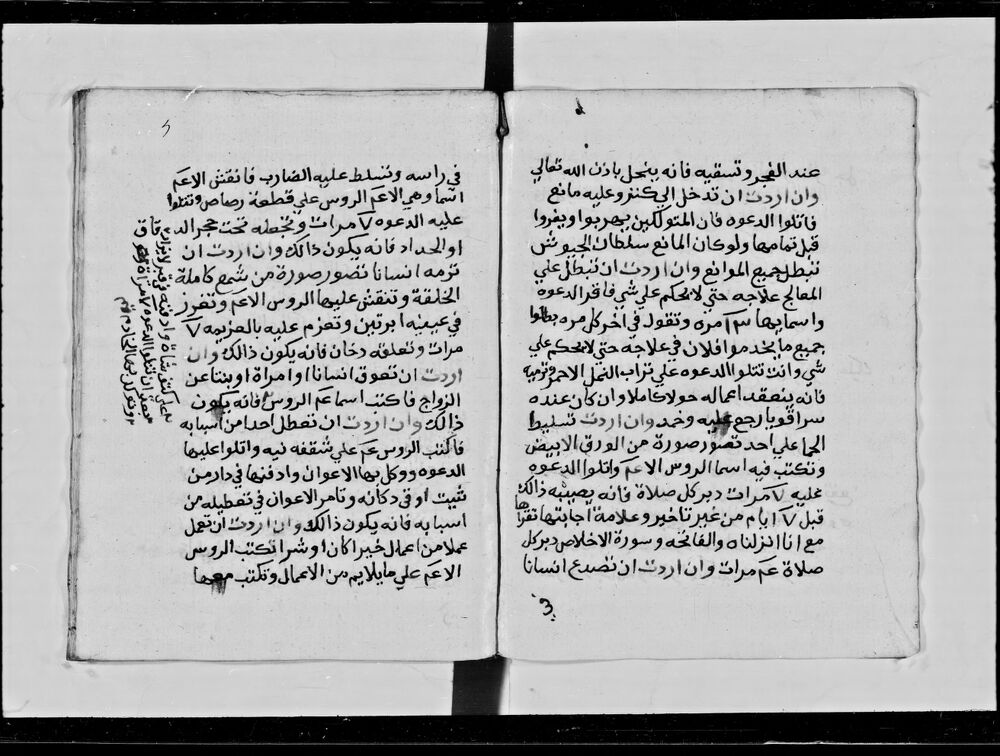 عند الفجر وتسقيه فانه ينحل باذن الله تعالي
وان اردت ان تدخل الي كنز وعليه مانع
فاتلوا الدعوه فان المتوكلين يهربوا ويفروا
قبل تمامها ولو كان المانع سلطان الجيوش
تبطل جميع الموانع وان اردت ان تبطل علي
المعالج علاجه حتي لا يحكم علي شي فاقر الدعوه
واسمايها ٣٢ مره وتقول في اخر كل مره بطلوا
جميع ما يخدموا فلان في علاجه حتي لا يحكم علي
شي وانت تتلوا الدعوه علي تراب النمل الاحمر وترميه
فانه ينعقد اعماله حولا كاملا وان كان عنده
سر اقويا رجع عليه وخمد وان اردت تسليط
الحما علي احد تصور صورة من الورق الابيض
وتكتب فيه اسما الروس الاعم واتلوا الدعوه
عليه ٧ مرات دبر كل صلاة فانه يصيبه ذالك
قبل ٧ ايام من غير تاخير وعلامة اجابتها تقراها
مع انا انزلناه والفاتحه وسورة الاخلاص دبر كل
صلاة عم مرات وان اردت ان تصدع انسانا
3
في راسه وتسلط عليه الضارب فانقش الاعم
اسما وهي الاعم الروس علي قطعة رصاص وتتلوا
عليه الدعوه ٧ مرات وتحطه تحت حجر
او الحداد فانه يكون ذالك وان اردت ان
ترمه انسانا تصور صورة من شمع كاملة
الخلقة وتنقش عليها الروس الاعم وتغرز
في عينيه ابرتين وتعزم عليه بالعزيمه ٧
مرات وتعلقه دخان فانه يكون ذالك وان
اردت ان تعوق انسانا او امراة او بنتا عن
الزواج فاكتب اسما عم الروس فانه يكون
ذالك وان اردت ان تعطل احد من اسبابه
فاكتب الروس عم علي شقفه نيه واتلوا عليها
الدعوه ووكل بها الاعوان وادفنها في دار من
شيت او في دكانه وتامر الاعوان في تعطيله من
اسبابه فانه يكون ذالك وان اردت ان تعمل
عملا من اعمال خيرا كان او شرا تكتب الروس
الاعم علي ما يلايم من الاعمال وتكتب معها
علي كتف شاة وادفنه في قبر لا يزار
بعد ان تتلوا الدعوه ٧ مراة
وتوكل بها الخادم